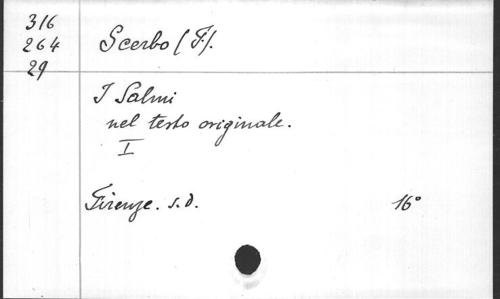 316
264
29
Scerbo (F.).
I Salmi
nel testo originale.
I
Firenze. s.d.
16°